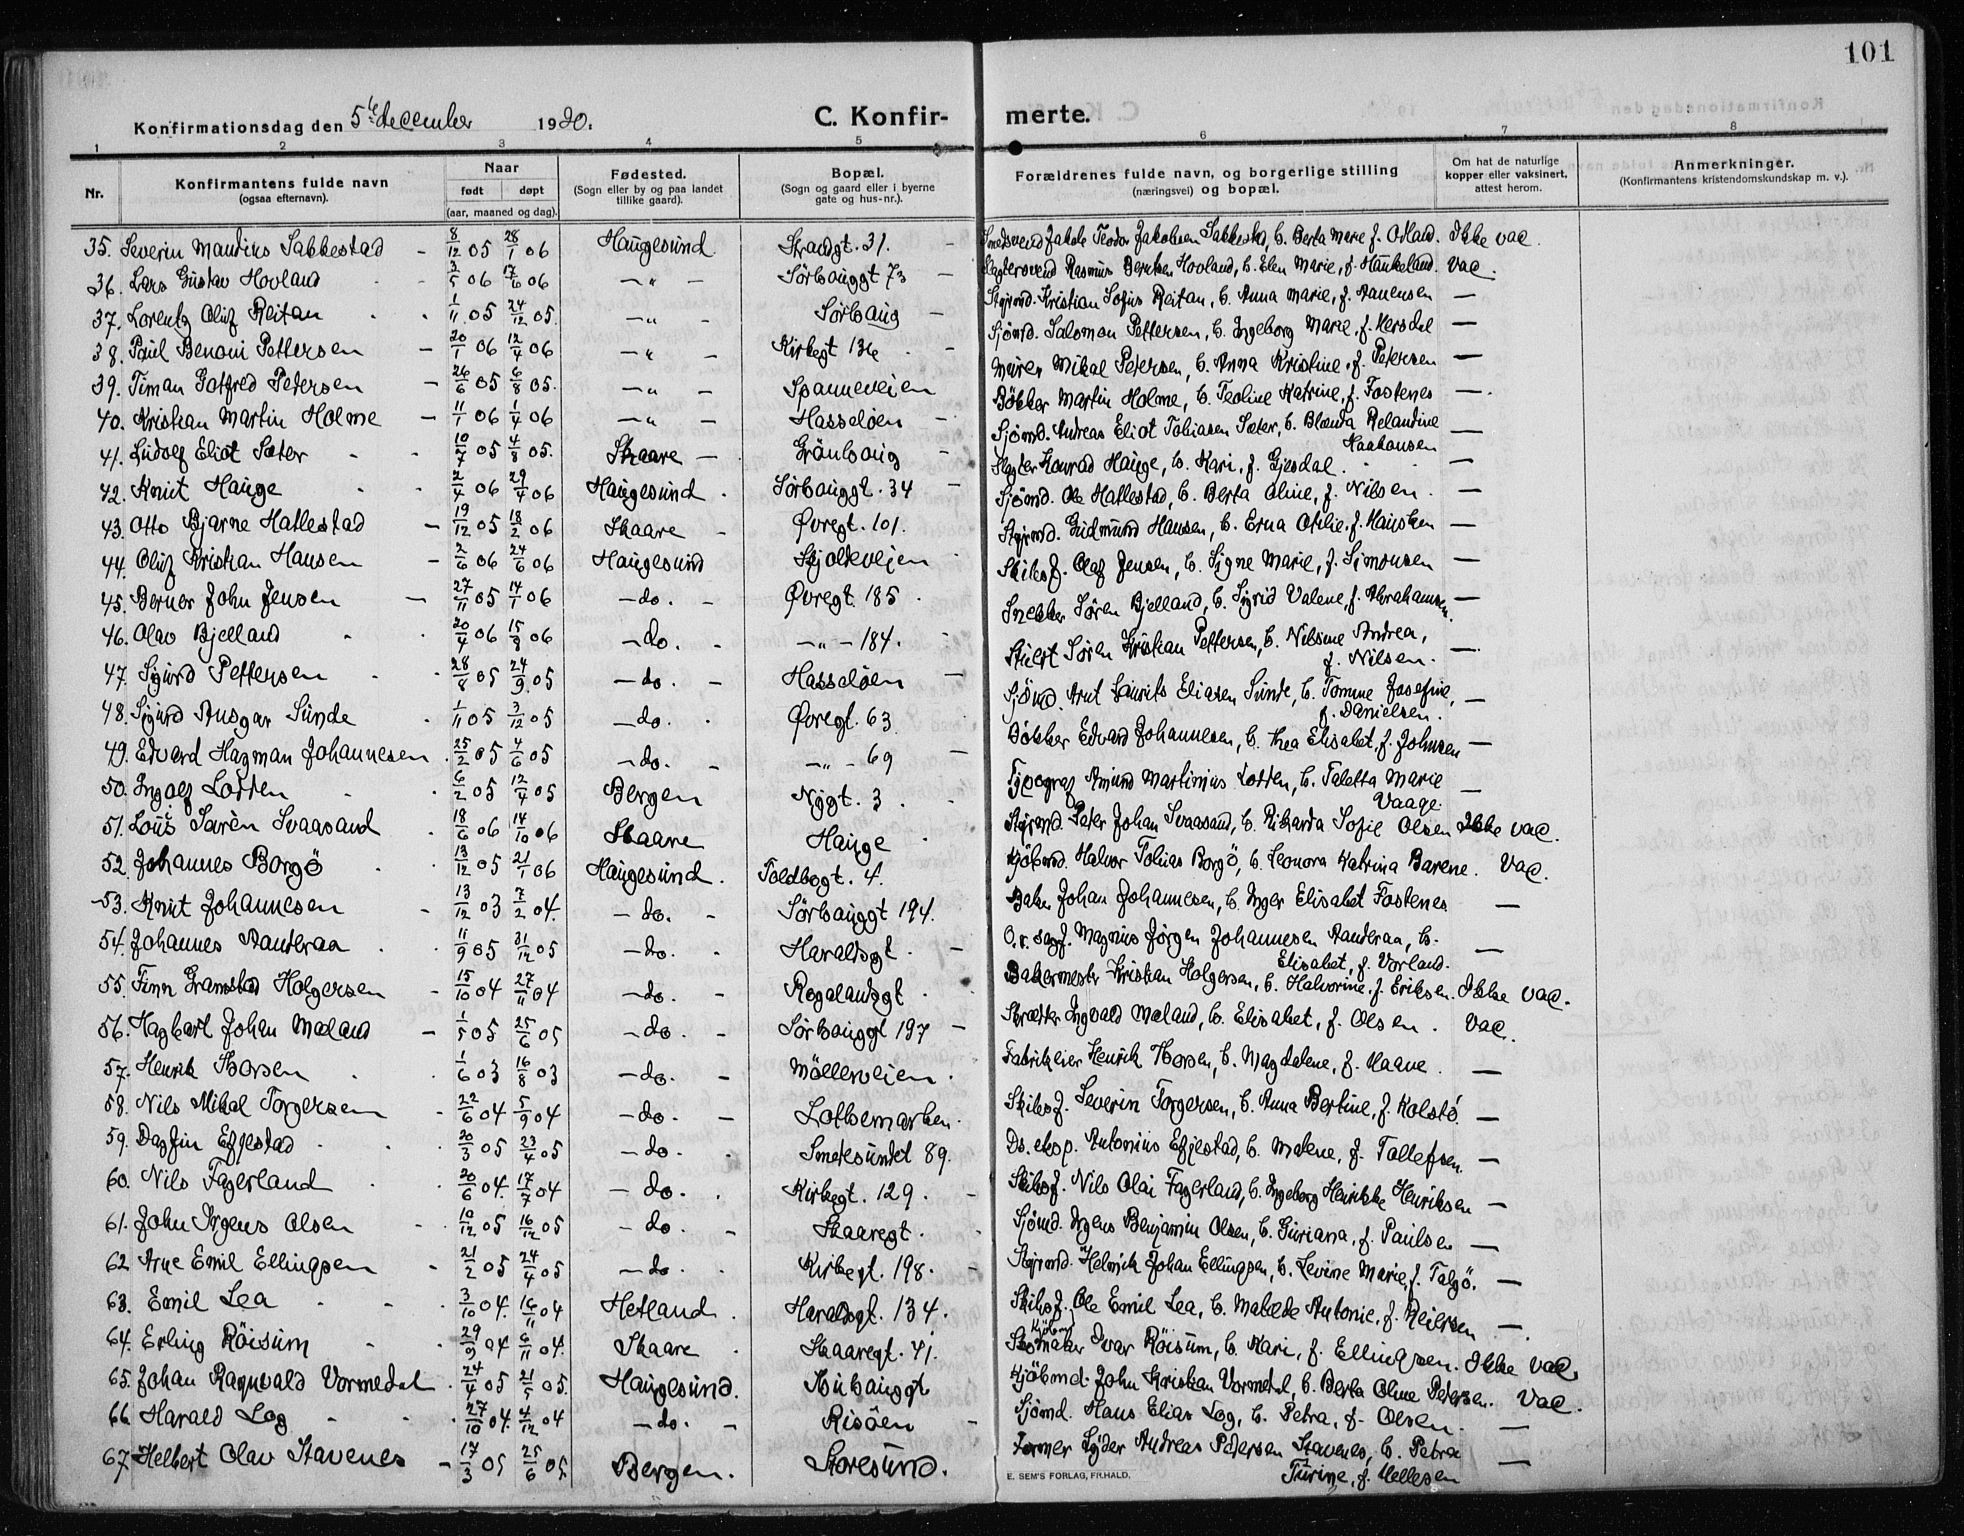 101
Konfirmationsdag den 5te december 1920. C. Konfirmerte.
1 2 3 4 5 6 7 8
Nr. Konfirmantens fulde navn (ogsaa efternavn). Naar født døpt (aar, maaned og dag). Fødested. (Sogn eller by og paa landet tillike gaard). Bopæl. (Sogn og gaard eller i byerne gate og hus-nr.). Forældrenes fulde navn, og borgerlige stilling (næringsvei) og bopæl. Om hat de naturlige kopper eller vaksinert, attest herom. Anmerkninger. (Konfirmantens kristendomskundskap m. v.).
35. Severin Mandius Sakkestad – 8/12 05 28/1 06 Haugesund Strandgt. 31. – Smedsvend Jakob Teodor Jakobsen Sakkestad, &. Berta Marie f. Odland. Ikke vac.
36. Lars Gustav Hovland 2/5 06 17/6 06 – " – Sørhauggt 73 – Slagtersvend Rasmus Berntsen Hovland, &. Elen Marie, f. Haukeland. Vac.
37. Lorentz Oluf Reitan 1/11 05 24/12 05. – " – Sørhaug – Styrmd. Kristian Sofus Reitan, &. Anna Marie, f. Aanensen —
38. Paul Benoni Pettersen – 20/1 06 12/4 06 – " – Kirkegt 136 – Sjömd. Salomon Pettersen, &. Ingeborg Marie, f. Hersdal —
39. Timan Gotfred Petersen – 26/6 05 6/8 05. – " – Spanneveien Murer Mikal Petersen, &. Anna Kristine, f. Petersen —
40. Kristian Martin Holme – 11/1 06 1/4 06 – " – Hasseløen – Bökker Martin Holme, &. Teoline Katrine, f. Fostenes —
41. Ludolf Eliot Sæter 10/7 05 4/8 05. Skaare – Grönhaug – Sjömd. Andreas Eliot Tobiasen Sæter, &. Blænda Relandine Haakonsen —
42. Knut Hauge 2/4 06 29/4 06 Haugesund. Sörhauggt. 34 – Slagter Konrad Hauge, &. Kari, f. Gjesdal. —
43. Otto Bjarne Hatlestad – 19/12 05 18/2 06 Skaare – Øvregt. 101. Sjömd. Ole Hatlestad, &. Berta Oline, f. Nilsen. —
44. Oluf Kristian Hansen – 2/6 06 24/6 06 Haugesund Skjoldeveien Styrmd. Gudmund Hansen, &. Erna Otilie, f. Hausken —
45. Berner John Jensen – 27/11 05 14/1 06 – do. – Øvregt. 185. Skibsf. Olaf Jensen, &. Signe Marie, f. Simonsen —
46. Olav Bjelland 20/4 06 15/8 06 – do. – – " – 184. – Snekker Sören Bjelland, &. Sigrid Valene, f. Abrahamsen. —
47. Sigurd Pettersen 28/8 05 24/9 05 – do. – Hasseløen – Stuert Sören Kristian Pettersen, &. Nilsine Andrea, f. Nilsen. —
48. Sigurd Ansgar Sunde 1/11 05 3/12 05 – do. Øvregt. 63. Sjömd. Knut Laurits Eliasen Sunde, &. Tomine Josefine, f. Danielsen. —
49. Edvard Hagman Johannesen. 25/2 05 4/6 05 – do. – – " – 69 – Bökker Edvard Johannesen, &. Thea Elisabet, f. Johnsen —
50. Ingolf Lodden 6/2 05 12/4 05 Bergen Nygt. 3. Typograf Amund Martinius Lodden, &. Taletta Marie Vaage. —
51. Louis Sarèn Svaasand 18/6 06 14/10 06 Skaare Hauge Styrmd. Peter Johan Svaasand, &. Rikarda Sofie Olsen Ikke vac.
52. Johannes Borgö 13/12 05 21/1 06 Haugesund. Toldbogt. 4. Kjöbmd. Halvor Tobias Borgö, &. Leonora Katrina Barene. Vac.
53. Knut Johannesen – 13/12 03 7/2 04. – do. – Sørhauggt 194. Baker Johan Johannesen, &. Inger Elisabet Fostenes —
54. Johannes Aanderaa 11/9 05 31/12 05 – do. Haraldsgt. – O.r. sagf. Magnus Jørgen Johannesen Aanderaa, &. Elisabet, f. Vorland. —
55. Finn Gramstad Holgersen – 15/10 04 27/11 04 – do. – Rogalandsgt. Bakermester Kristian Holgersen, &. Halvorine, f. Eriksen. Ikke vac.
56. Hagbart Johan Mæland – 1/5 05 25/6 05 – do. – Sörhauggt 197 – Skrædder Ingvald Mæland, &. Elisabet, f. Olsen. Vac.
57. Henrik Thorsen 1/6 03 16/8 03 – do. – Möllerveien. Fabrikeier Henrik Thorsen, &. Magdalene, f. Haave. —
58. Nils Mikal Torgersen – 22/6 04 5/9 04 – do. – Lothemarken. Skibsf. Severin Torgersen, &. Anna Bertine, f. Kolstö. —
59. Dagfin Egjestad 20/3 05 23/4 05 – do. Smedesundet 89. Ds. eksp. Antonius Egjestad, &. Malene, f. Tollefsen. —
60. Nils Fagerland 20/6 04. 17/7 04 – do. Kirkegt. 129. – Skibsf. Nils Olai Fagerland, &. Ingeborg Henrikke Henriksen —
61. John Jrgens Olsen 10/12 05 16/12 05 – do. – Skaaregt. Sjömd. Jrgens Benjamin Olsen, &. Guriana, f. Paulsen —
62. Arne Emil Ellingsen – 21/2 05 24/4 05 – do. Kirkegt. 198. Styrmd. Helmik Johan Ellingsen, &. Levine Marie, f. Talgö. —
63. Emil Lea 3/10 04. 16/11 04 Hetland. Haraldsgt. 134. Skibsf. Ole Emil Lea, &. Matilde Antonie, f. Reiersen —
64. Erling Röisum 29/9 04 6/11 04. Skaare Skaaregt. 41. Skomaker Ivar Röisum, &. Kari, f. Ellingsen. Ikke vac.
65. Johan Ragnvald Vormedal. 24/4 05 21/5 05. Haugesund. Aubauggt Kjöbmd. John Kristian Vormedal, &. Berta Oline Petersen. Vac.
66. Harald Log 27/10 04. 4/12 04 – do. – Risöen – Sjömd. Hans Elias Log, &. Petra, f. Olsen. —
67. Helbert Olav Stavenes – 17/3 05 25/6 05 Bergen. Storesund. Former Lyder Andreas Pedersen Stavenes, &. Petra Turine, f. Mellesen —
E. SEM'S FORLAG, FR.HALD.